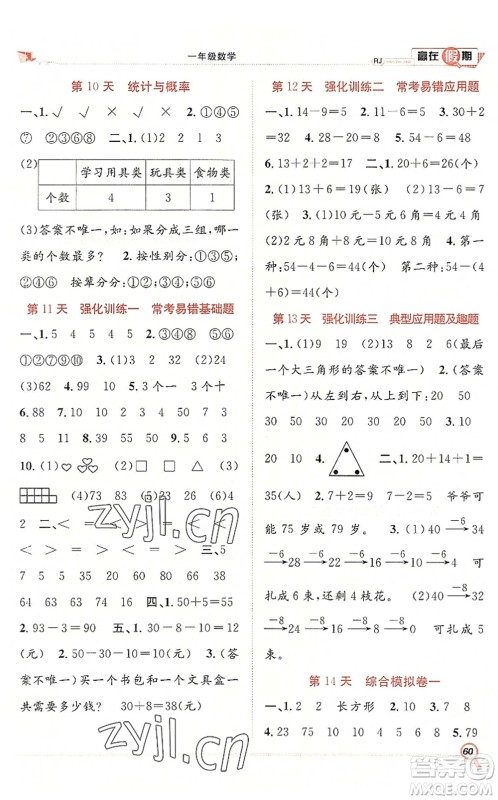 一年级数学
RJ
赢在假期
第10天 统计与概率
一、1.√ √ × √ 2.(1)①③④
⑦ ②⑤⑥⑧ 二、1.(1)②④⑤⑥
(2)
学习用具类 玩具类 食物类
个数 4 3 1
(3)(答案不唯一)如:如果分成三组,哪一
类的个数最多? 2.按性别分:①③④⑤
②⑥ 按辈分:①②④⑥ ③⑤
第11天 强化训练一 常考易错基础题
一、1.5 4 10 5 2.③⑤ ⑤⑥
①②③④ 3.(1)②④ (2)③④
(3)62 4.99 10 5.37 75
6.88 7.1 4 17 50 40 50
8 11 5 8.√ 9.10 4 2
10.(1) (2) (3)
(4)73 83 (5)23 26 60
2 二、< = < = = =
< > = = < > 三、1.5
7 10 24 14 10 20 2.37
30 64 74 16 四、1.50+5=55
2.93-3=90 五、1.12-2=10
(元) 2.30-10-8=12(元) 3.(答案
不唯一)如果买一本书和一个文具盒一
共需要多少钱? 30+8=38(元)
第12天 强化训练二 常考易错应用题
一、1.14-9=5 2.11-8=3 3.30+2
=32 4.20+5=25 5.16-7=9
6.13+2+1=16 二、1.20+6=26(个)
2.(1)6+7=13(张) (2)13-6=7(张)
3.(1)10元-6元=4元 8角-4角=
4角 (2)2元+8元=10元 4.第一
种:54-4-6=44(个) 第二种:54-(4
+6)=44(个)
第13天 强化训练三 典型应用题及趣题
一、1.(1)9 19 (2)8 13 (3)8(最后
一个大三角形的答案不唯一) 2.(答案
不唯一)从左到右,从上到下:30 20
50 30 50 20 50 20 30 3.15
20 10 4. 二、1.20+14+1=
35(人) 2.60+6=66(岁) 爷爷可
能75岁,也可能79岁。 3.40 —6→
34 —6→ 28 —6→ 22 —6→ 16 —6→ 10 —6→ 4 可
扎成6束,还剩4枝花。 4.40 —8→ 32
—8→ 24 —8→ 16 —8→ 8 —8→ 0 可扎成
5束
第14天 综合模拟卷一
一、1.2 2 长方形 2.1 7 3.75
4.7 23 82 90 91 8 5.79
60
zyjl.cn
zyjl.cn
答案圈
MXQE.COM